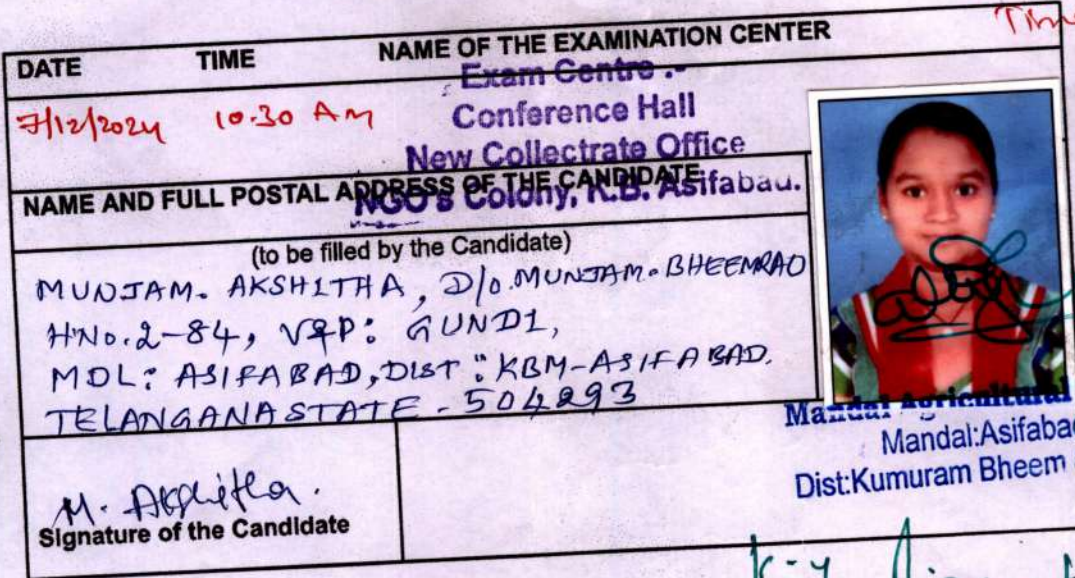 DATE TIME NAME OF THE EXAMINATION CENTER
7/12/2024 10.30 AM
Exam Centre :-
Conference Hall
New Collectrate Office
NGO's Colony, K.B. Asifabad.
NAME AND FULL POSTAL ADDRESS OF THE CANDIDATE
(to be filled by the Candidate)
MUNJAM. AKSHITHA, D/o. MUNJAM. BHEEMRAO
H'No. 2-84, V&P: GUNDI,
MDL: ASIFABAD, DIST: KBM-ASIFABAD.
TELANGANA STATE - 504293
Mandal Agricultural
Mandal:Asifabad
Dist:Kumuram Bheem
M. Akshitha.
Signature of the Candidate